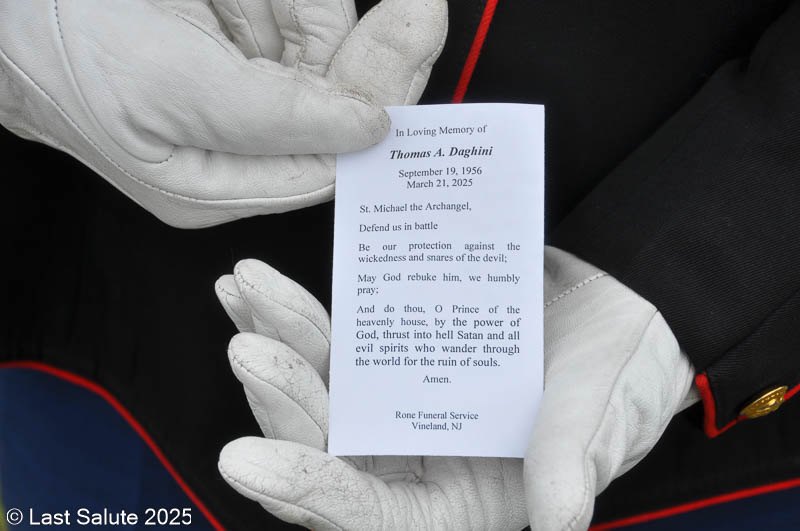 In Loving Memory of
Thomas A. Daghini
September 19, 1956
March 21, 2025
St. Michael the Archangel,
Defend us in battle
Be our protection against the
wickedness and snares of the devil;
May God rebuke him, we humbly
pray;
And do thou, O Prince of the
heavenly house, by the power of
God, thrust into hell Satan and all
evil spirits who wander through
the world for the ruin of souls.
Amen.
Rone Funeral Service
Vineland, NJ
© Last Salute 2025